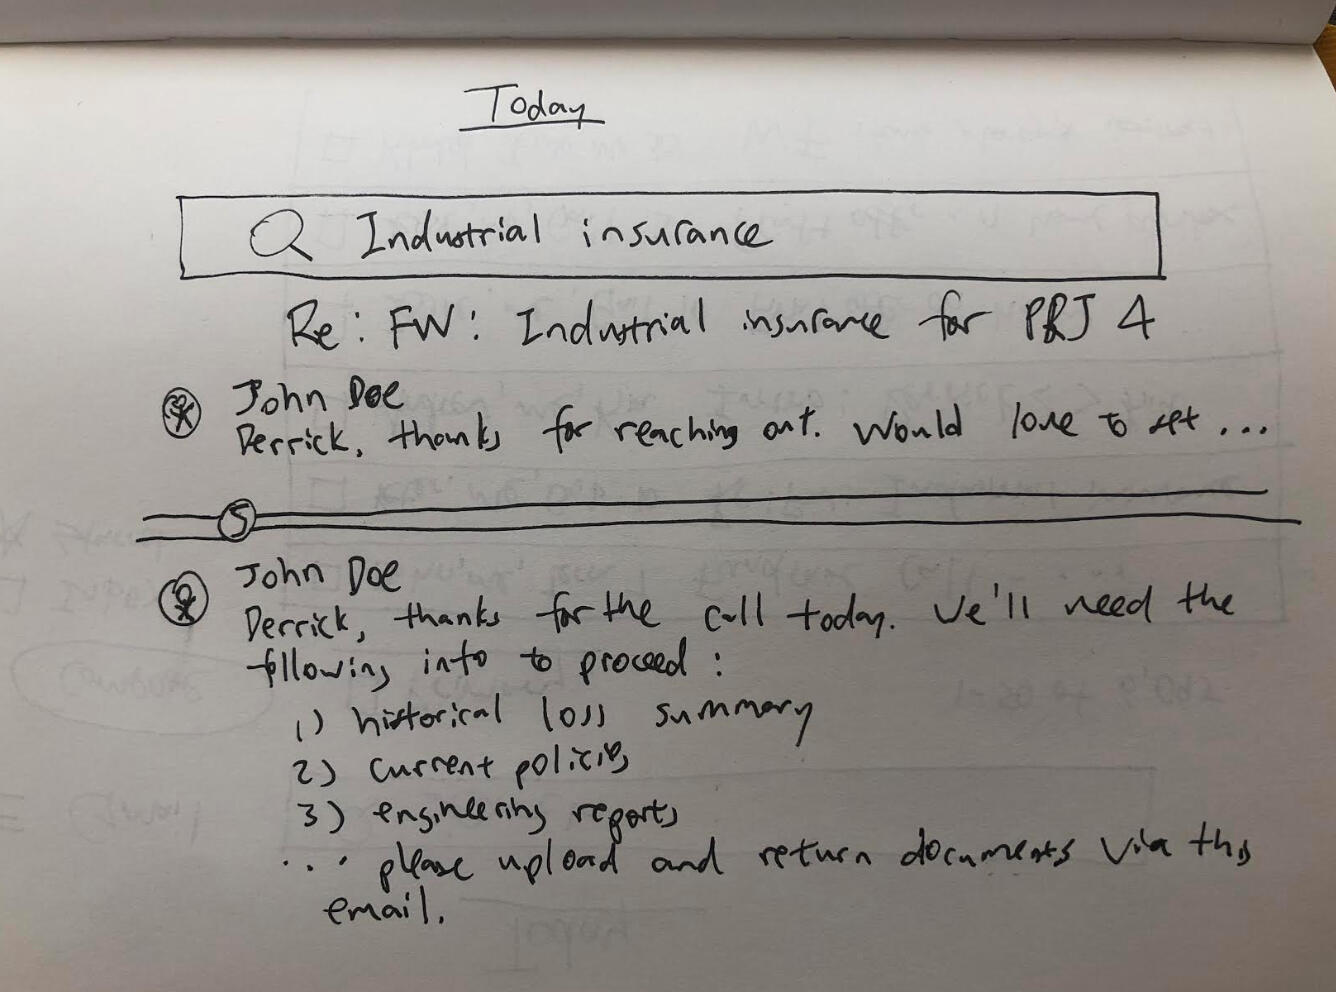 Today
Industrial insurance
Re: FW: Industrial insurance for PRJ 4
John Doe
Derrick, thanks for reaching out. Would love to set ...
5
John Doe
Derrick, thanks for the call today. We'll need the
following info to proceed:
1) historical loss summary
2) current policies
3) engineering reports
... please upload and return documents via this
email.